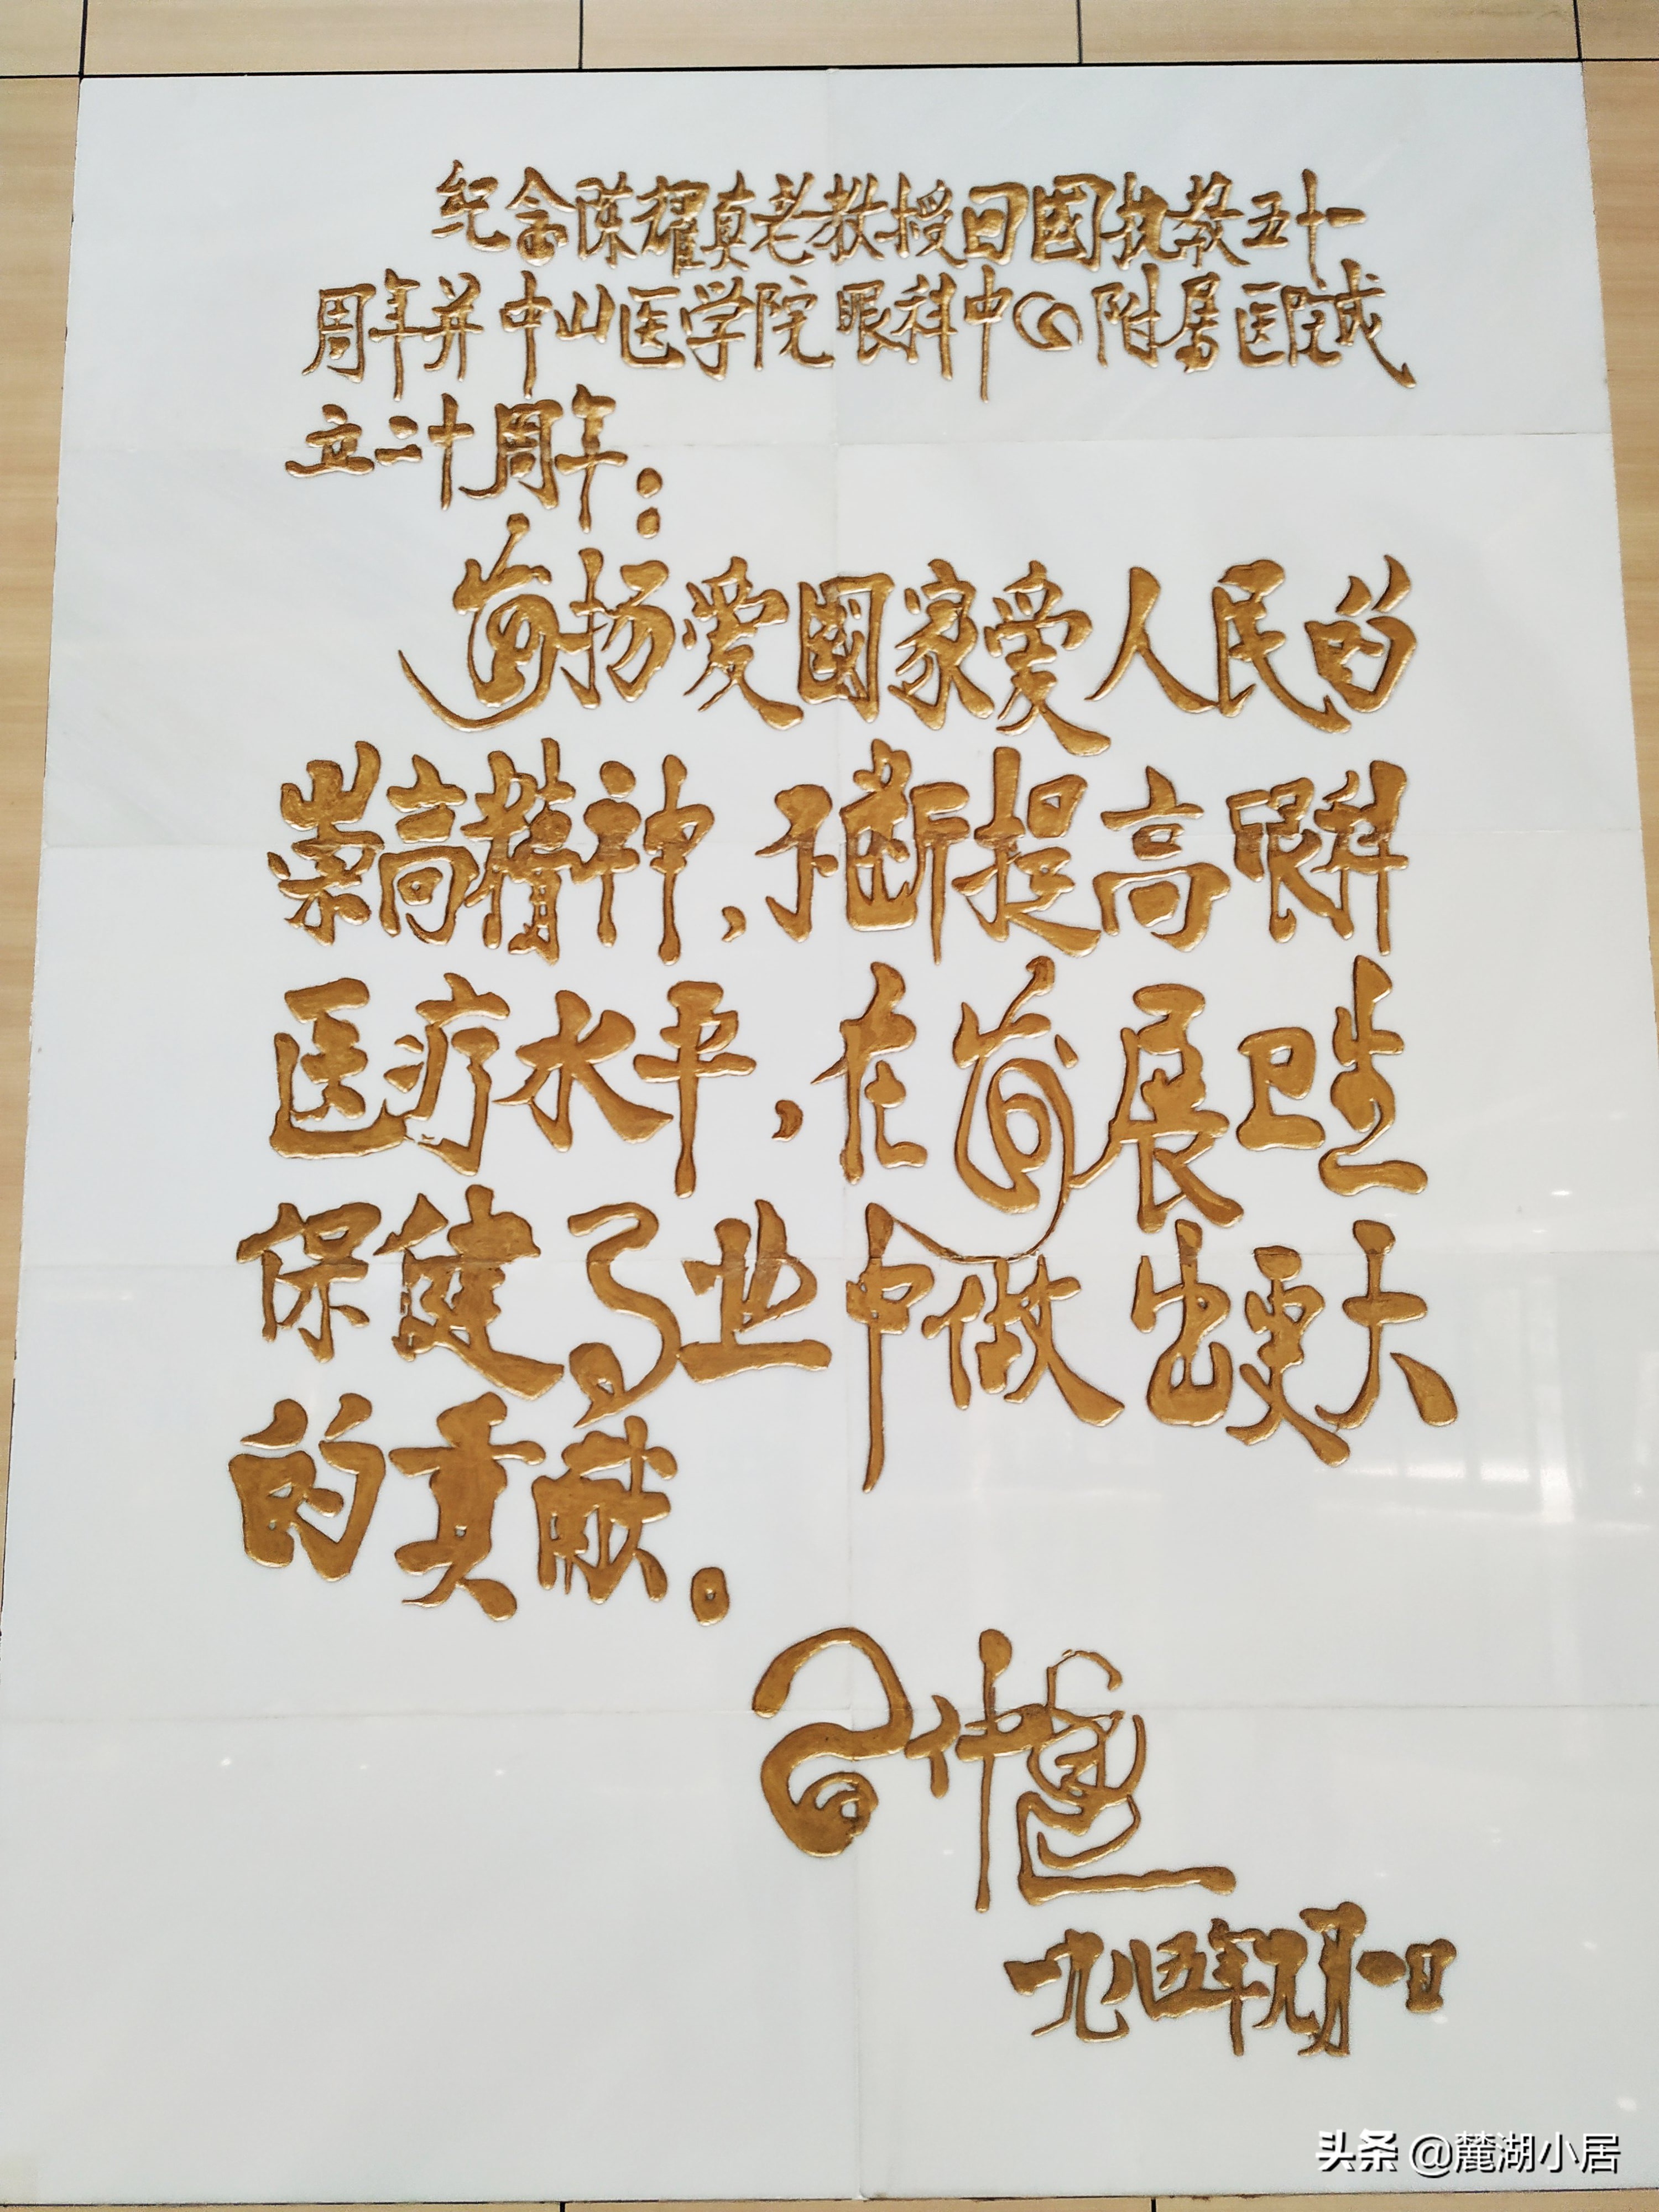 纪念陈耀真老教授回國执教五十一
周年并中山医学院眼科中心附属医院成
立二十周年：
发扬爱國家爱人民的
崇高精神，不断提高眼科
医疗水平，在发展卫生
保健事业中做出更大
的贡献。
习仲勋
一九八五年九月一日
头条 @麓湖小居